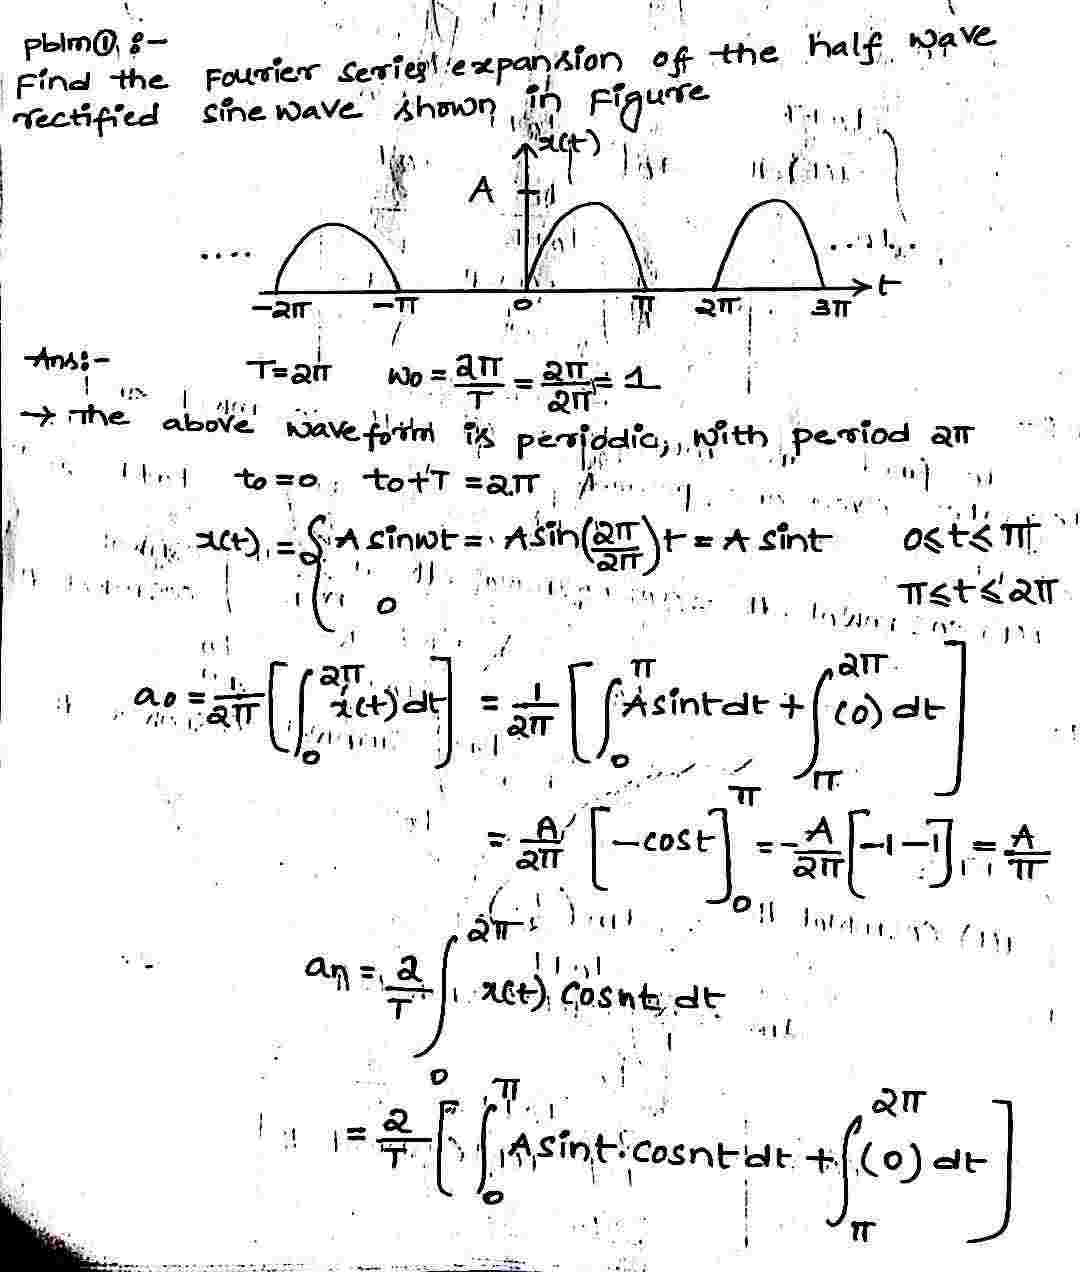 pblm① :-
Find the Fourier series expansion off the half wave
rectified sine wave shown in Figure
x(t)
A
.... ....
-2π -π 0 π 2π 3π t
Ans:- T=2π ω0 = 2π/T = 2π/2π = 1
→ The above waveform is periodic, with period 2π
t0=0, t0+T=2π
x(t) = { A sinωt = A sin(2π/2π)t = A sint 0≤t≤π
0 π≤t≤2π
a0 = 1/2π [∫_0^2π x(t) dt] = 1/2π [∫_0^π A sint dt + ∫_π^2π (0) dt]
= A/2π [-cost]_0^π = -A/2π [-1-1] = A/π
an = 2/T ∫_0^2π x(t) cosnt dt
= 2/T [∫_0^π A sint. cosnt dt + ∫_π^2π (0) dt]